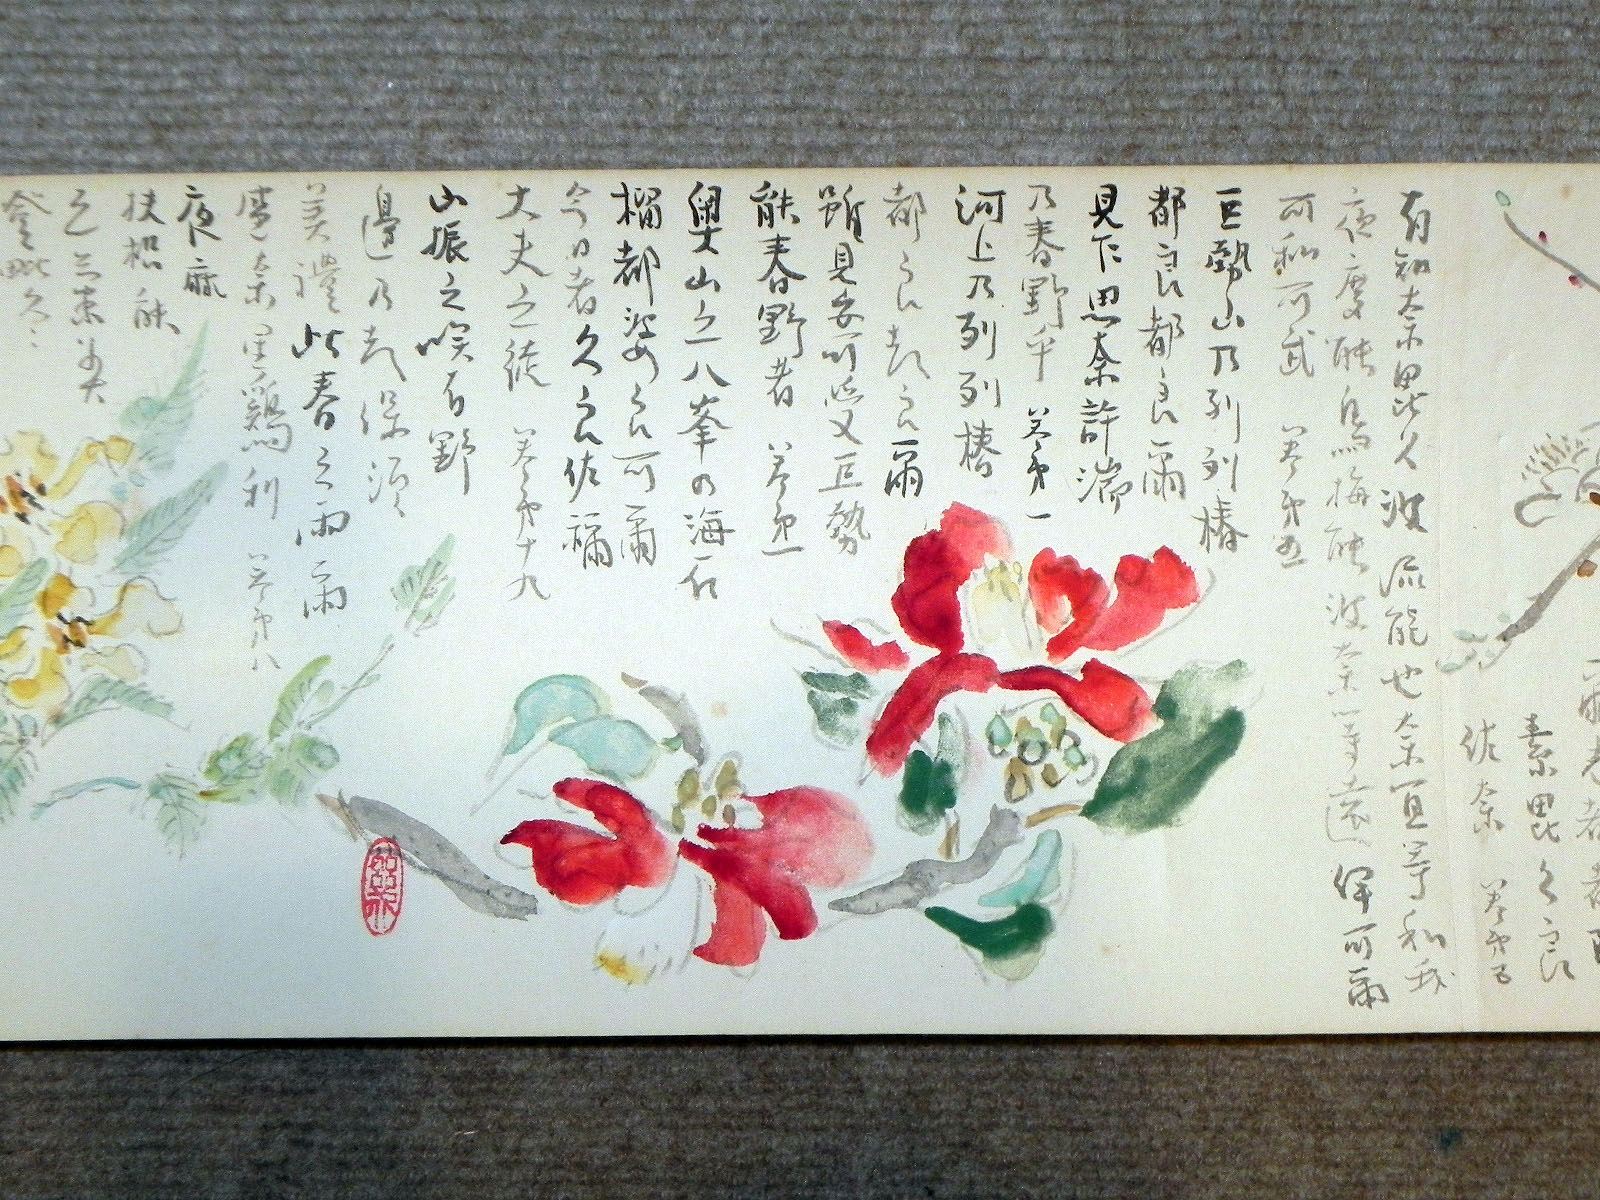 素毘久良
佐奈 巻第五
有知奈毘久波流能也奈宜等和我
夜度能烏梅能波奈等遠伊可爾
可和可武 巻第五
巨勢山乃列列椿
都良都良爾
見乍思奈許湍
乃春野乎 巻第一
河上乃列列椿
都良都良爾
雖見安可受巨勢
能春野者 巻第一
奥山之八峯の海石
榴都婆良可爾
今日者久良佐禰
大夫之徒 巻第十九
山振之咲有野
邊乃都保須
美禮此春之雨爾
盛奈里鶏利 巻第八
夜麻
扶枳能
登毗久々